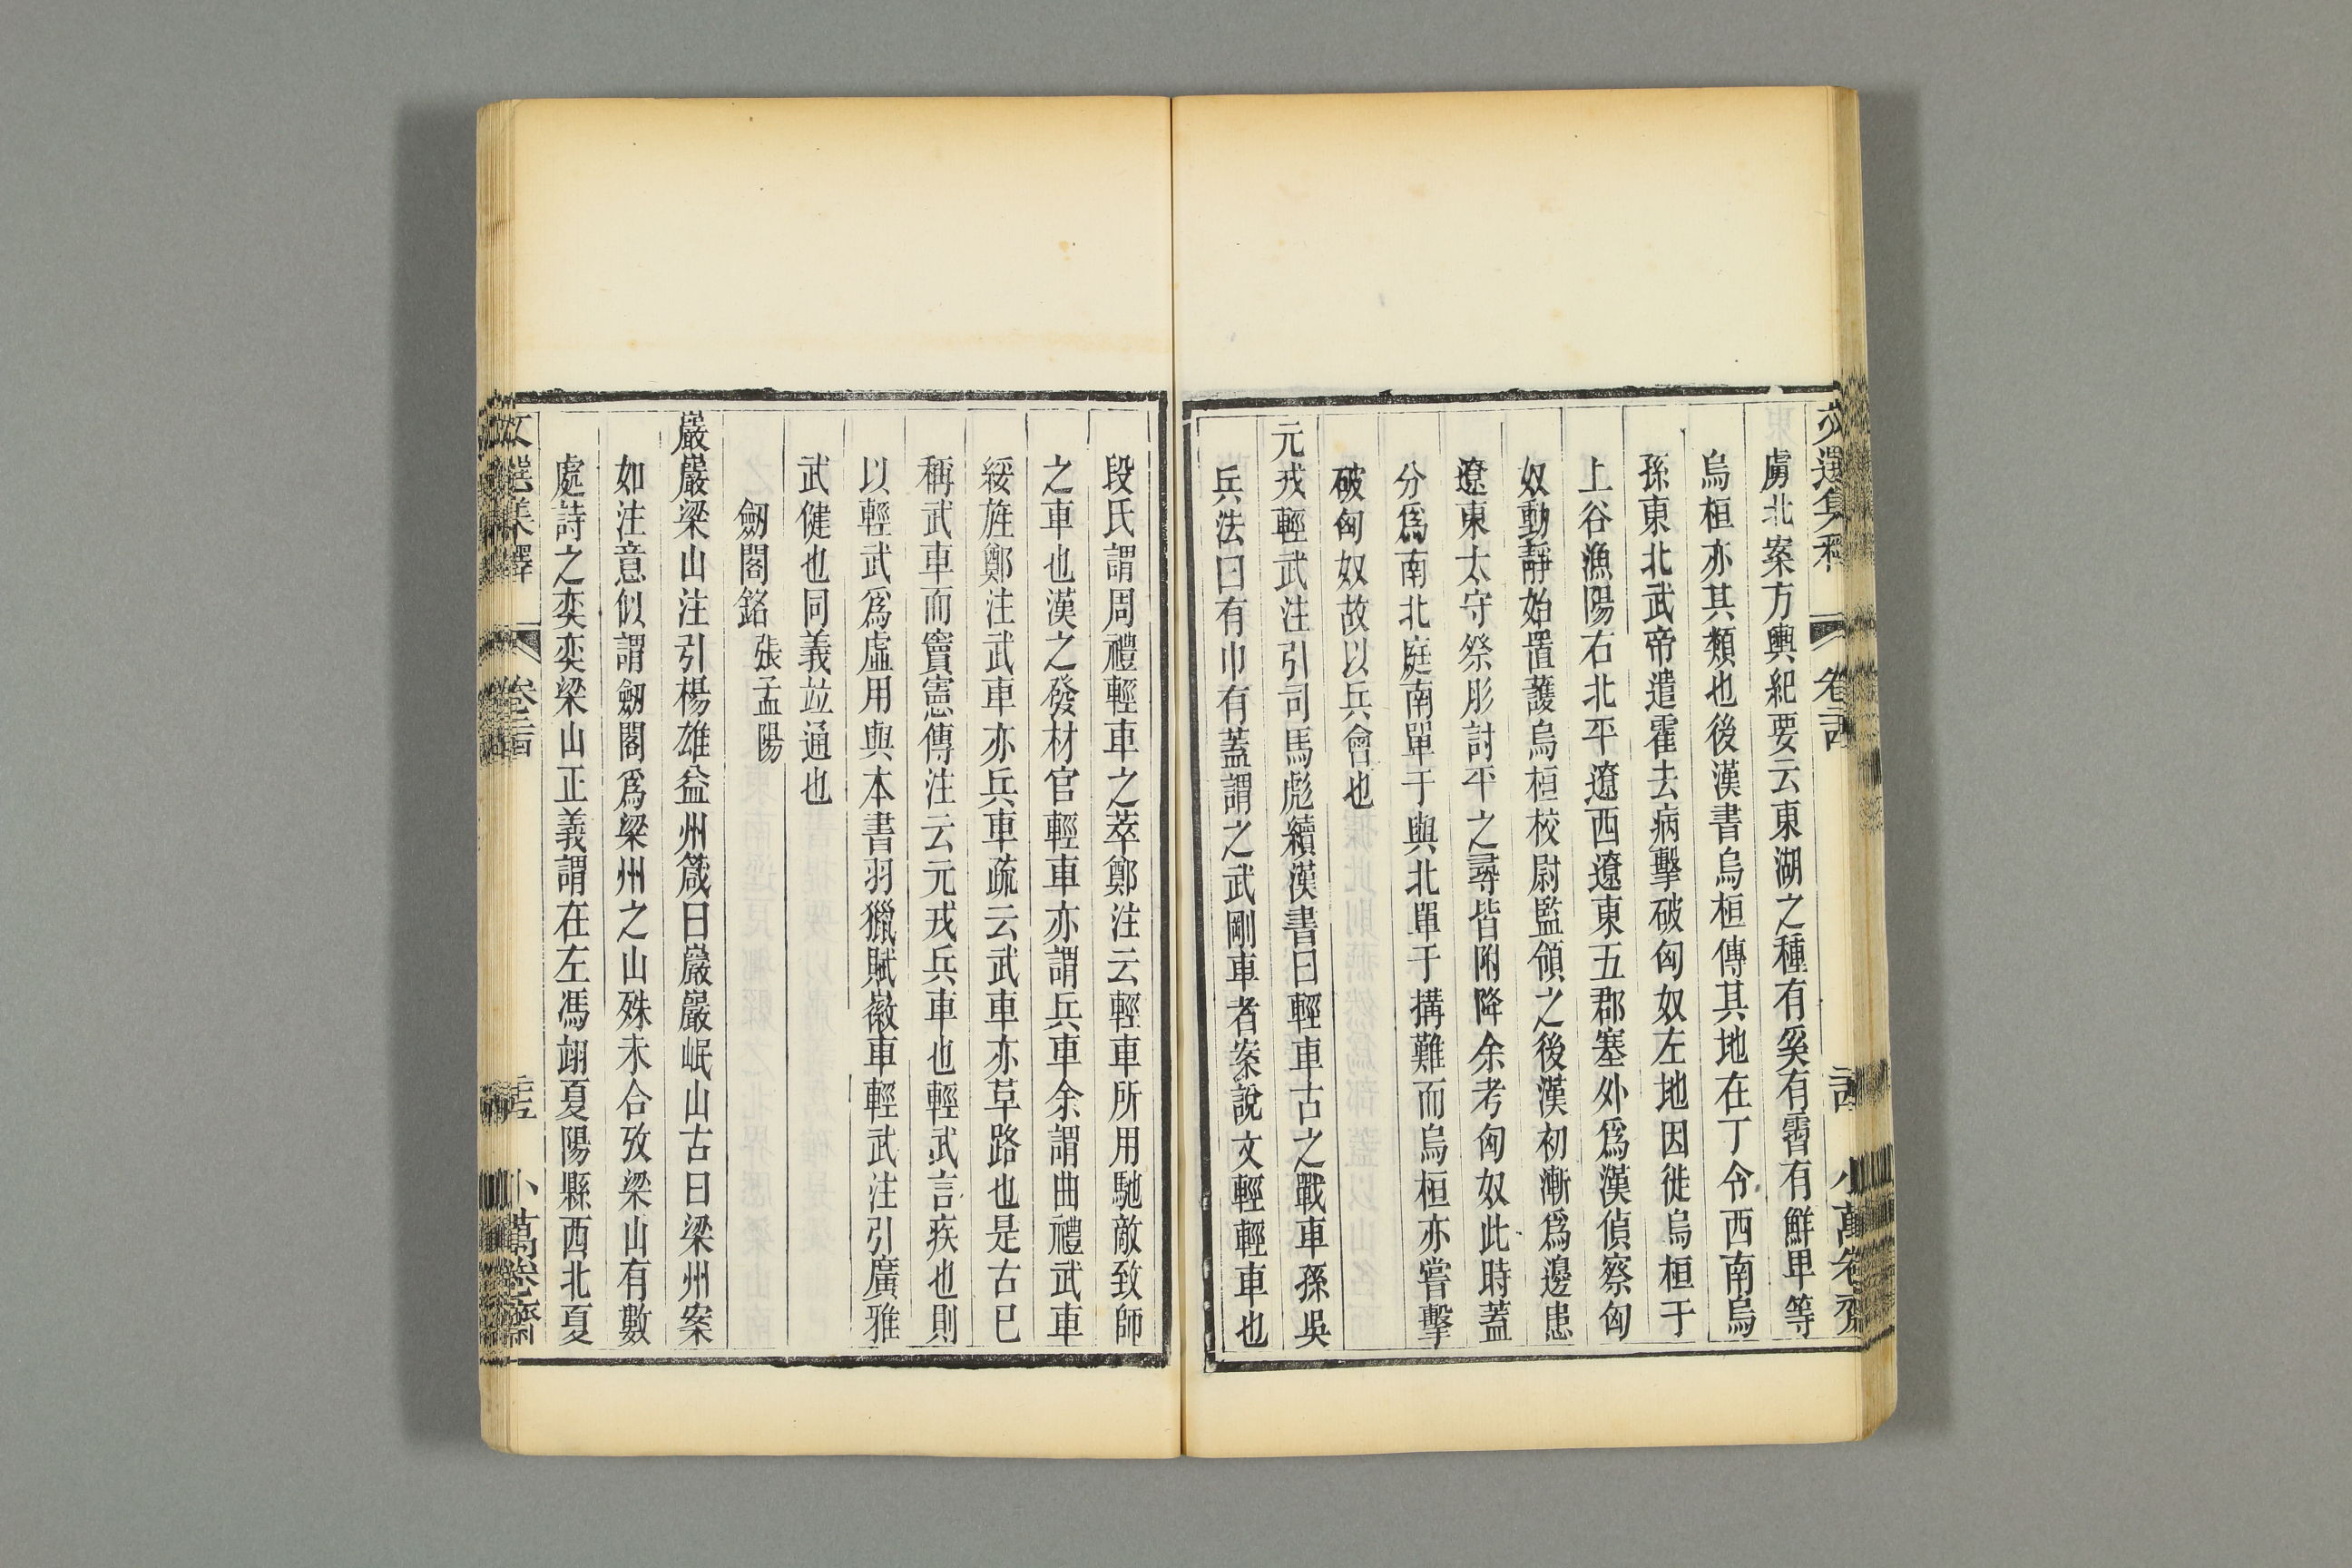 文選集釋 卷二十四 二十四 小萬卷齋
虜北案方輿紀要云東湖之種有奚有霫有鮮卑等
烏桓亦其類也後漢書烏桓傳其地在丁令西南烏
孫東北武帝遣霍去病擊破匈奴左地因徙烏桓于
上谷漁陽右北平遼西遼東五郡塞外爲漢偵察匈
奴動靜始置護烏桓校尉監領之後漢初漸爲邊患
遼東太守祭肜討平之尋皆附降余考匈奴此時蓋
分爲南北庭南單于與北單于搆難而烏桓亦嘗擊
破匈奴故以兵會也
元戎輕武注引司馬彪續漢書曰輕車古之戰車孫吳
兵法曰有巾有蓋謂之武剛車者案說文輕輕車也
段氏謂周禮輕車之萃鄭注云輕車所用馳敵致師
之車也漢之發材官輕車亦謂兵車余謂曲禮武車
綏旌鄭注武車亦兵車疏云武車亦草路也是古已
稱武車而竇憲傳注云元戎兵車也輕武言疾也則
以輕武爲虛用與本書羽獵賦徽車輕武注引廣雅
武健也同義竝通也
劒閣銘 張孟陽
巖巖梁山注引楊雄益州箴曰巖巖岷山古曰梁州案
如注意似謂劒閣爲梁州之山殊未合攷梁山有數
處詩之奕奕梁山正義謂在左馮翊夏陽縣西北夏
文選集釋 卷二十四 二十五 小萬卷齋